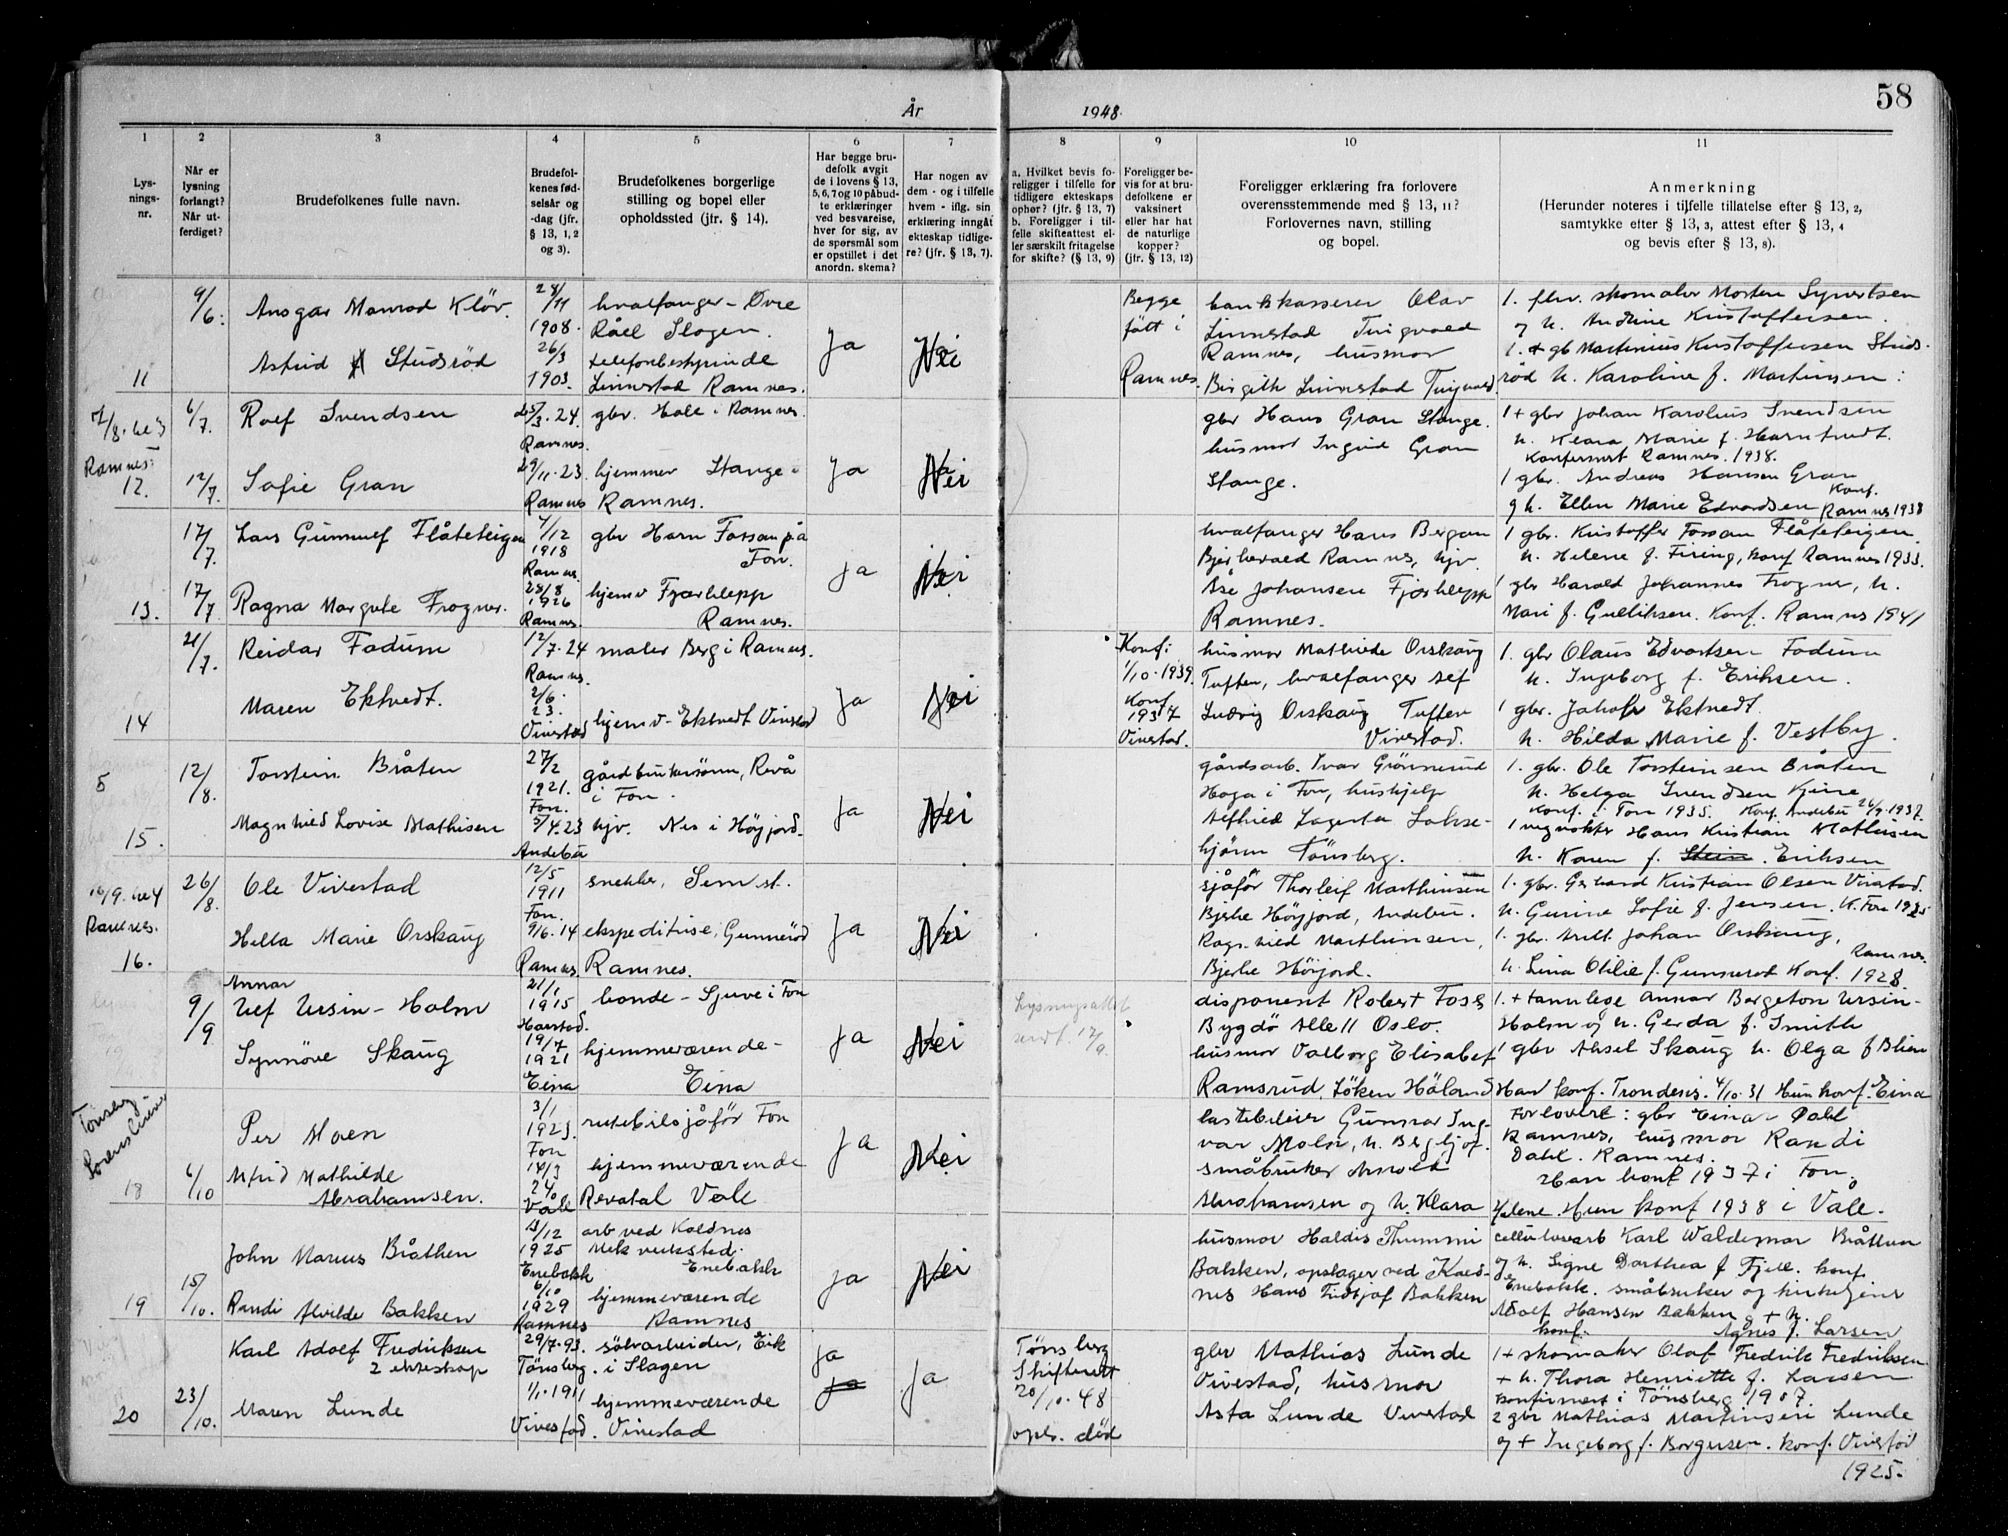 58
År 1948.
1 2 3 4 5 6 7 8 9 10 11
Lys-
nings-
nr.
Når er
lysning
forlangt?
Når ut-
ferdiget?
Brudefolkenes fulle navn.
Brudefol-
kenes fød-
selsår og
-dag (jfr.
§ 13, 1, 2
og 3).
Brudefolkenes borgerlige
stilling og bopel eller
opholdssted (jfr. § 14).
Har begge bru-
defolk avgit
de i lovens § 13,
5, 6, 7 og 10 påbud-
te erklæringer
ved besvarelse,
hver for sig, av
de spørsmål som
er opstillet i det
anordn. skema?
Har nogen av
dem - og i tilfelle
hvem - iflg. sin
erklæring inngåt
ekteskap tidlige-
re? (jfr. § 13, 7).
a. Hvilket bevis fo-
religger i tilfelle for
tidligere ekteskaps
ophør? (jfr. § 13, 7)
b. Foreligger i til-
felle skifteattest el-
ler særskilt fritagelse
for skifte? (§ 13, 9)
Foreligger be-
vis for at bru-
defolkene er
vaksinert
eller har hat
de naturlige
kopper?
(jfr. § 13, 12)
Foreligger erklæring fra forlovere
overensstemmende med § 13, 11?
Forlovernes navn, stilling
og bopel.
Anmerkning
(Herunder noteres i tilfelle tillatelse efter § 13, 2,
samtykke efter § 13, 3, attest efter § 13, 4
og bevis efter § 13, 8).
11
9/6.
Ansgar Monrad Kløv.
Astrid Studsrød
28/11
1908.
26/3
1903.
hvalfanger - Øvre
Råel Slagen.
telefonbestyrinde
Linnestad Ramnes.
Ja
Nei
Begge
født i
Ramnes.
bankkasserer Olav
Linnestad Tingvald
Ramnes, husmor
Birgith Linnestad Tingvald
1. fhv. skomaker Morten Syvertsen
og h. Andrine Kristoffersen.
1. + gb Martinius Kristoffersen Studs-
rød h. Karoline f. Martinsen:
Ramnes:
12.
6/7.
12/7.
Rolf Svendsen
Sofie Gran
25/3.24
Ramnes.
29/11.23
Ramnes
gbr. Hole i Ramnes.
hjemmev Stange i
Ramnes.
Ja
Nei
gbr Hans Gran Stange.
husmor Ingrid Gran
Stange.
1 + gbr Johan Karolius Svendsen
h. Klara Marie f. Harntvedt.
Konfirmert Ramnes. 1938.
1 gbr. Andreas Hansen Gran
g h. Ellen Marie Edvardsen Konf. Ramnes 1938
13.
17/7.
17/7
Lars Gunnulf Flåteteigen
Ragna Margrete Frogner.
7/12
1918
Ramnes.
28/8
1926
Ramnes.
gbr Horn Fossan på
Fon.
hjemv Fjærklepp
Ramnes.
Ja
Nei
hvalfanger Hans Bergan
Bjerkevald Ramnes, hjv.
Åse Johansen Fjærklepp
Ramnes.
1 gbr. Kristoffer Fossan Flåteteigen
h. Helene f. Firing, konf Ramnes 1933.
1 gbr Harald Johannes Frogner, h.
Mari f. Gulliksen. Konf. Ramnes 1941
14
21/7.
Reidar Fadum
Maren Ektvedt.
12/7.24
Ramnes.
2/6.
23.
Vivestad
maler Berg i Ramnes.
hjemv - Ektvedt Vivestad
Ja
Nei
Konf:
1/10.1939.
Konf
1937
Vivestad.
husmor Mathilde Orskaug
Tuften, hvalfanger Alf
Ludvig Orskaug Tuften
Vivestad.
1. gbr Olaus Edvartsen Fadum
h. Ingeborg f. Eriksen.
1 gbr. Jakob Ektvedt.
h. Hilda Marie f. Vestby.
5
15.
12/8.
Torstein Bråten
Magnhild Lovise Mathisen
27/2
1921.
Fon.
5/4.23
Andebu
gårdbrukersønn, Revå
i Fon.
hjv. Nes i Høyjord.
Ja
Nei
gårdsarb. Ivar Grønnerud
Haga i Fon, hushjelp
Alfhild Lagerta Lakse-
hjørn Tønsberg.
1. gbr. Ole Torsteinsen Bråten
h. Helga Svendsen
Konf. i Fon 1935. Konf. Andebu 26/9.1937.
1 vegvokter Hans Kristian Mathisen
h. Karen f. Stein. Eriksen
Ramnes.
16.
26/8.
Ole Vivestad
Hella Marie Orskaug
12/5
1911
Fon.
9/6.14
Ramnes.
snekker, Sem st.
ekspeditrise, Gunnerød
Ramnes.
Ja
Nei
sjåfør Thorleif Marthinsen
Bjerke Høyjord, Andebu.
Ragnhild Marthinsen,
Bjerke Høyjord.
1. gbr. Gerhard Kristian Olsen Vivestad.
h. Gurine Sofie f. Jensen. K. Fon 1925
1. gbr. Johan Orskaug,
h. Lina Otilie f. Gunnerød Konf. Ramnes. 1928.
9/9
Annar
Ulf Ursin-Holm
Synnøve Skaug
21/1
1915
Harstad.
19/7
1921
Eina
bonde - Sjuve i Fon
hjemmeværende -
Eina
Ja
Nei
Lysningsattest
sendt. 17/9.
disponent Robert Foss
Bygdø Alle 11 Oslo.
husmor Valborg Elisabet
Ramsrud, Løken Høland
1. + tannlege Annar Bergeton Ursin-
Holm og h. Gerda f. Smith
1 gbr Aksel Skaug h. Olga f Blien
Han konf. Trondenes. 4/10.31 Hun konf. Eina
18
6/10
Per Moen
Alfrid Mathilde
Abrahamsen.
3/1
1923.
Fon
14/3
24
Våle
rutebilsjåfør Fon
hjemmeværende
Revetal Våle
Ja
Nei
lastebileier Gunnar Ing-
var Moen, h. Bergljot.
småbruker Arnold
Abrahamsen og h. Klara
Forlovere: gbr Einar Dahl
Ramnes, husmor Randi
Dahl. Ramnes.
Han konf 1937 i Fon.
Helene. Hun konf 1938 i Våle.
19
15/10.
John Marius Bråthen
Randi Alvilde Bakken
13/12
1925
Enebakk
6/10
1929
Ramnes
arb ved Kaldnes
Mek verksted.
Enebakk
hjemmeværende
Ramnes
Ja
Nei
husmor Haldis Thummi
Bakken, opslager ved Kald-
nes Hans Fridtjof Bakken
cellulosearb Karl Waldemar Bråthen
og h. Signe Dorthea f Fjell. konf.
Enebakk. småbruker og kirketjener
Adolf Hansen Bakken og + h.
konf. Agnes f. Larsen
20
23/10.
Karl Adolf Fredriksen
2 ekteskap
Maren Lunde
29/7.93.
Tønsberg.
1/1.1911
Vivestad.
sølvarbeider, Eik
i Slagen
hjemmeværende
Vivestad
ja
ja
Ja
Tønsberg
Skifterett
20/10.48
opl. død
gbr Mathias Lunde
Vivestad, husmor
Asta Lunde Vivestad
1 + skomaker Olaf Fredrik Fredriksen
+ h. Thora Henriette f. Larsen
konfirmert i Tønsberg 1907.
2 gbr Mathias Martinsen Lunde
og + Ingeborg f. Borgersen. konf. Vivestad
1925.